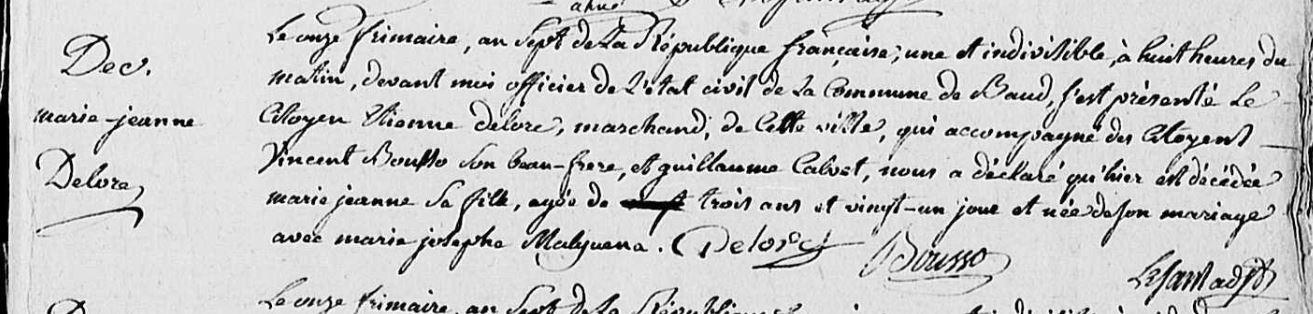 Déc.
marie-jeanne
Delore
Le onze frimaire, an Sept de La République française, une et indivisible, à huit heures du
matin, devant moi officier de L'état civil de La Commune de Baud, s'est présenté Le
Citoyen Etienne delore, marchand, de Cette ville, qui accompagné des Citoyens
Vincent Bousso Son beau-frere, et guillaume Calvet, nous a déclaré qu'hier est décédée
marie jeanne Sa fille, agée de trois ans et vingt-un jour et née de Son mariage
avec marie josephe Malguena. Delore
Bousso
Le onze frimaire, an Sept de La République